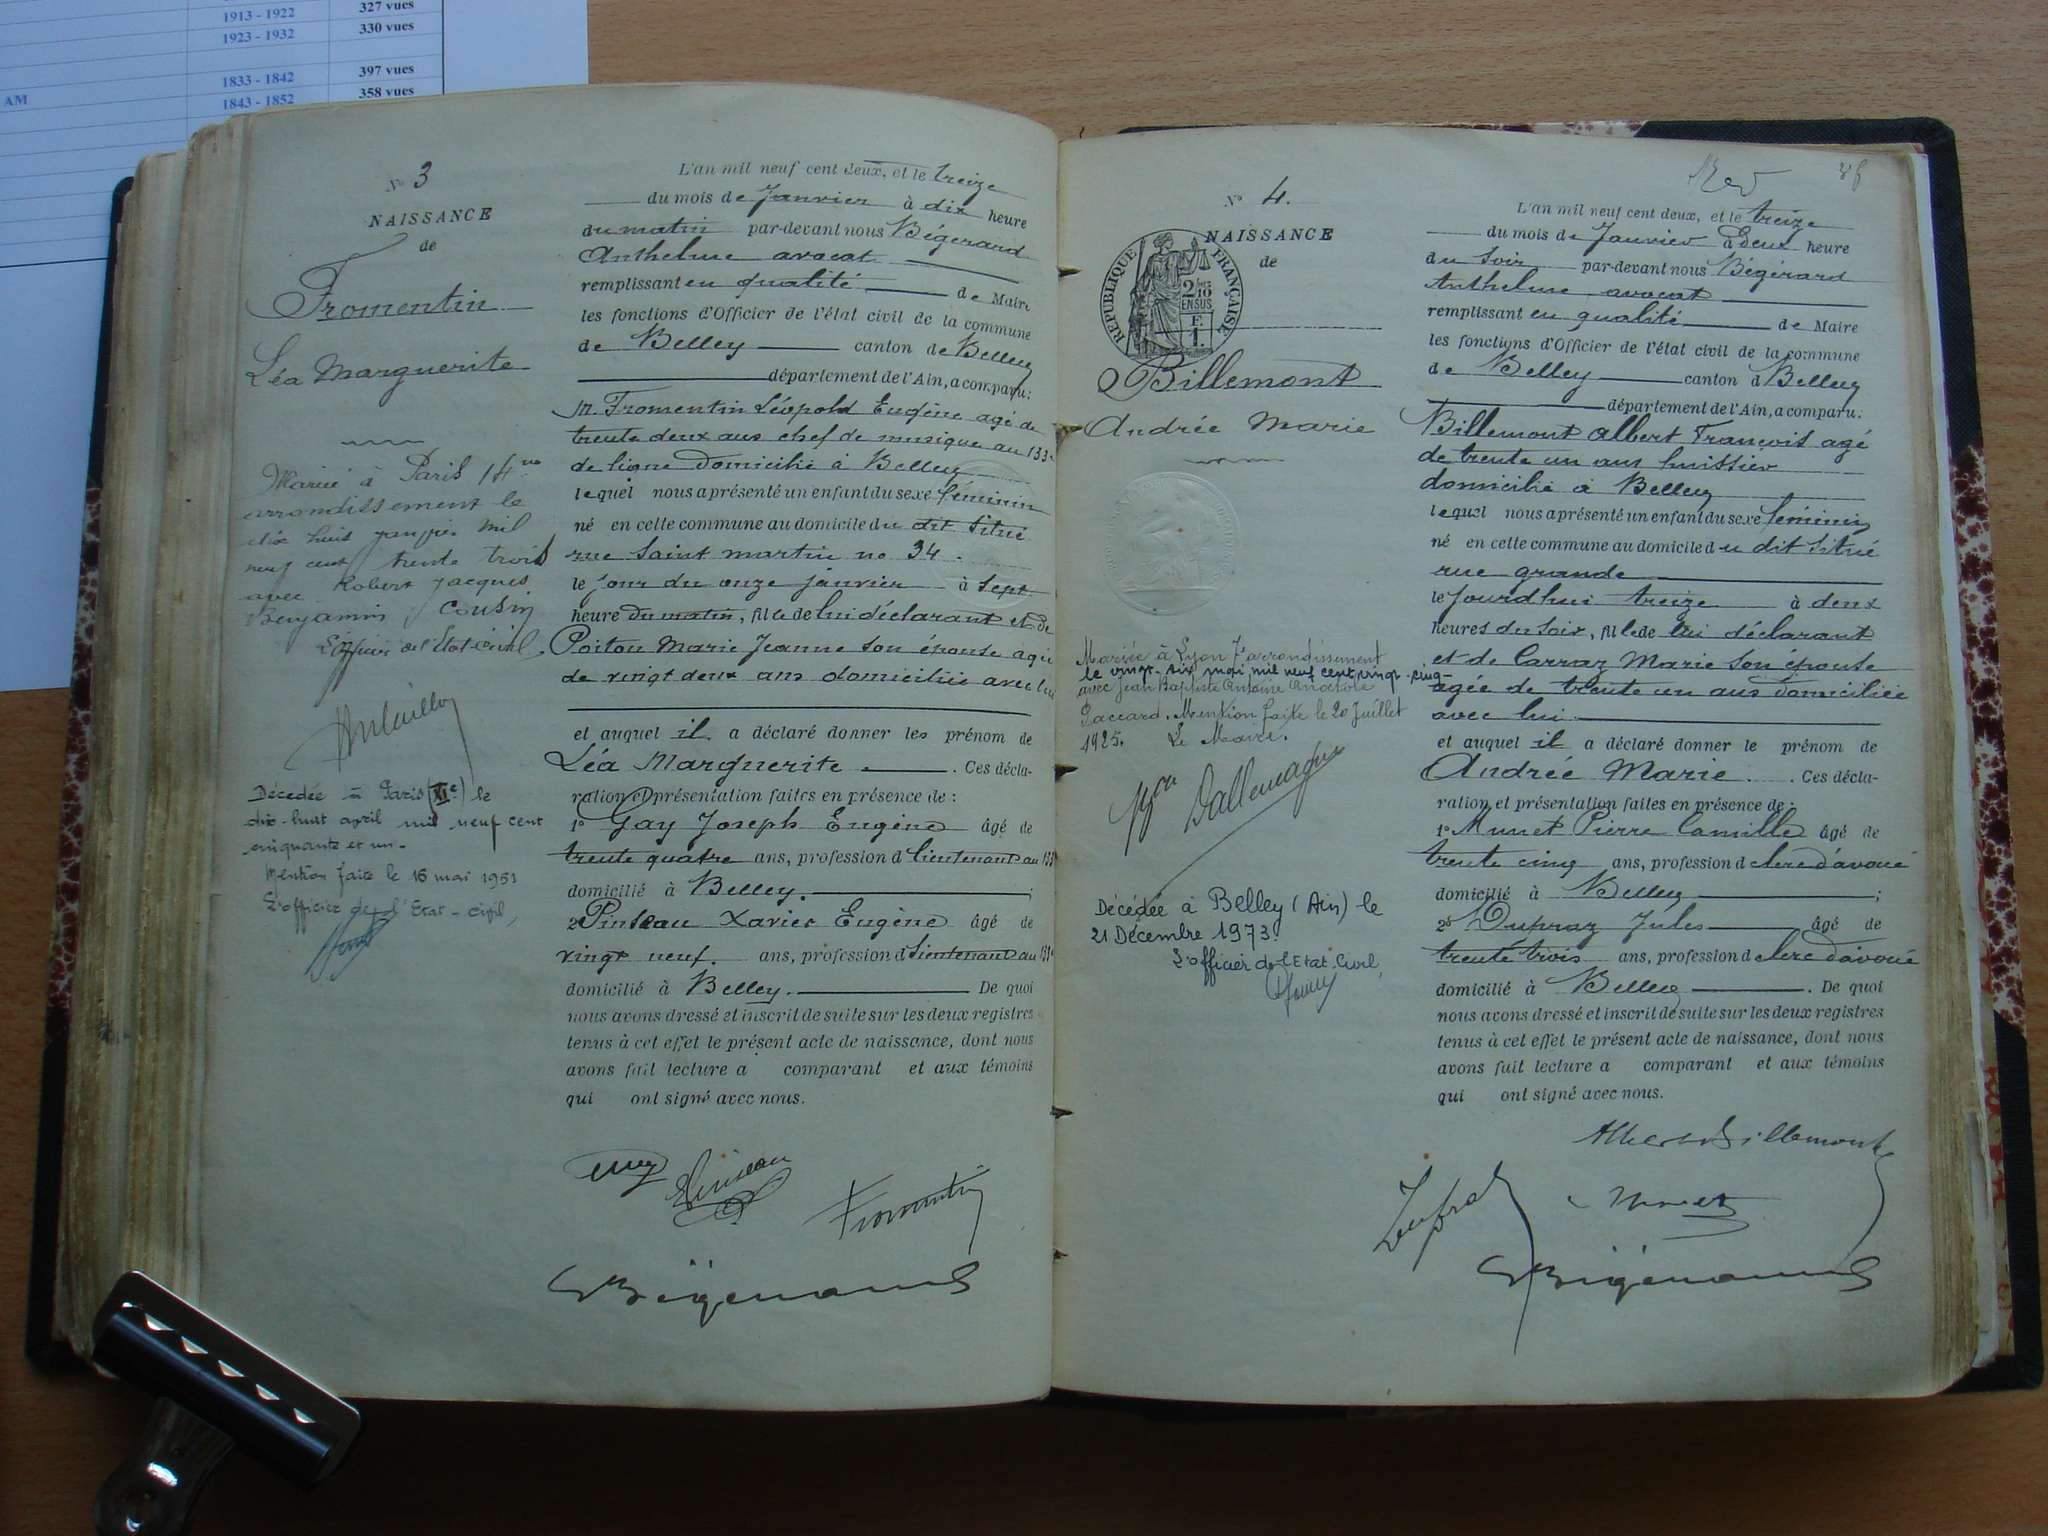 1913 - 1922 327 vues
1923 - 1932 330 vues
1833 - 1842 397 vues
AM 1843 - 1852 358 vues
N° 3
NAISSANCE
de
Fromentin
Léa Marguerite
Mariée à Paris 14me
arrondissement le
dix huit janvier mil
neuf cent trente trois
avec Robert Jacques
Benjamin Cousin
L'Officier de l'Etat-civil.
Décédée à Paris (XIe) le
dix-huit avril mil neuf cent
cinquante et un.
Mention faite le 16 mai 1951
L'officier de l'Etat-civil,
L'an mil neuf cent deux, et le treize
du mois de Janvier à dix heure
du matin par-devant nous Bégérard
Anthelme avocat
remplissant en qualité de Maire
les fonctions d'Officier de l'état civil de la commune
de Belley canton de Belley
département de l'Ain, a comparu:
M. Fromentin Léopold Eugène agé de
trente deux ans chef de musique au 133e
de ligne domicilié à Belley
lequel nous a présenté un enfant du sexe féminin
né en cette commune au domicile du dit situé
rue Saint martin no 34.
le jour du onze janvier à sept
heure du matin, fille de lui déclarant et de
Poitou Marie Jeanne son épouse agée
de vingt deux ans domiciliée avec lui
et auquel il a déclaré donner les prénom de
Léa Marguerite . Ces décla-
ration et présentation faites en présence de :
1° Gay Joseph Eugène âgé de
trente quatre ans, profession d lieutenant au 133e
domicilié à Belley. ;
2° Pinteau Xavier Eugène âgé de
vingt neuf. ans, profession d lieutenant au 133e
domicilié à Belley. De quoi
nous avons dressé et inscrit de suite sur les deux registres
tenus à cet effet le présent acte de naissance, dont nous
avons fait lecture a comparant et aux témoins
qui ont signé avec nous.
Pinteau
Fromentin
Bégérard
N° 4.
NAISSANCE
de
REPUBLIQUE FRANÇAISE
2/10 EN SUS
F.
1.
Billemont
Andrée Marie
Mariée à Lyon 7e arrondissement
le vingt-six mai mil neuf cent vingt-cinq
avec Jean Baptiste Antoine Anatole
Paccard. Mention faite le 20 Juillet
1925. Le Maire.
Dallemagne
Décédée à Belley (Ain) le
21 Décembre 1973.
L'officier de l'Etat-Civil,
L'an mil neuf cent deux, et le treize
du mois de Janvier à Deux heure
du soir par-devant nous Bégérard
Anthelme avocat
remplissant en qualité de Maire
les fonctions d'Officier de l'état civil de la commune
de Belley canton d Belley
département de l'Ain, a comparu:
Billemont Albert François agé
de trente un ans huissier
domicilié à Belley
lequel nous a présenté un enfant du sexe féminin
né en cette commune au domicile du dit situé
rue grande
le jourd'hui treize à deux
heures du soir, fille de lui déclarant
et de Carraz Marie son épouse
agée de trente un ans domiciliée
avec lui
et auquel il a déclaré donner le prénom de
Andrée Marie . Ces décla-
ration et présentation faites en présence de :
1° Munet Pierre Camille âgé de
trente cinq ans, profession d clerc d'avoué
domicilié à Belley ;
2° Dupraz Jules âgé de
trente trois ans, profession d clerc d'avoué
domicilié à Belley . De quoi
nous avons dressé et inscrit de suite sur les deux registres
tenus à cet effet le présent acte de naissance, dont nous
avons fait lecture a comparant et aux témoins
qui ont signé avec nous.
Albert Billemont
Dupraz
Munet
Bégérard